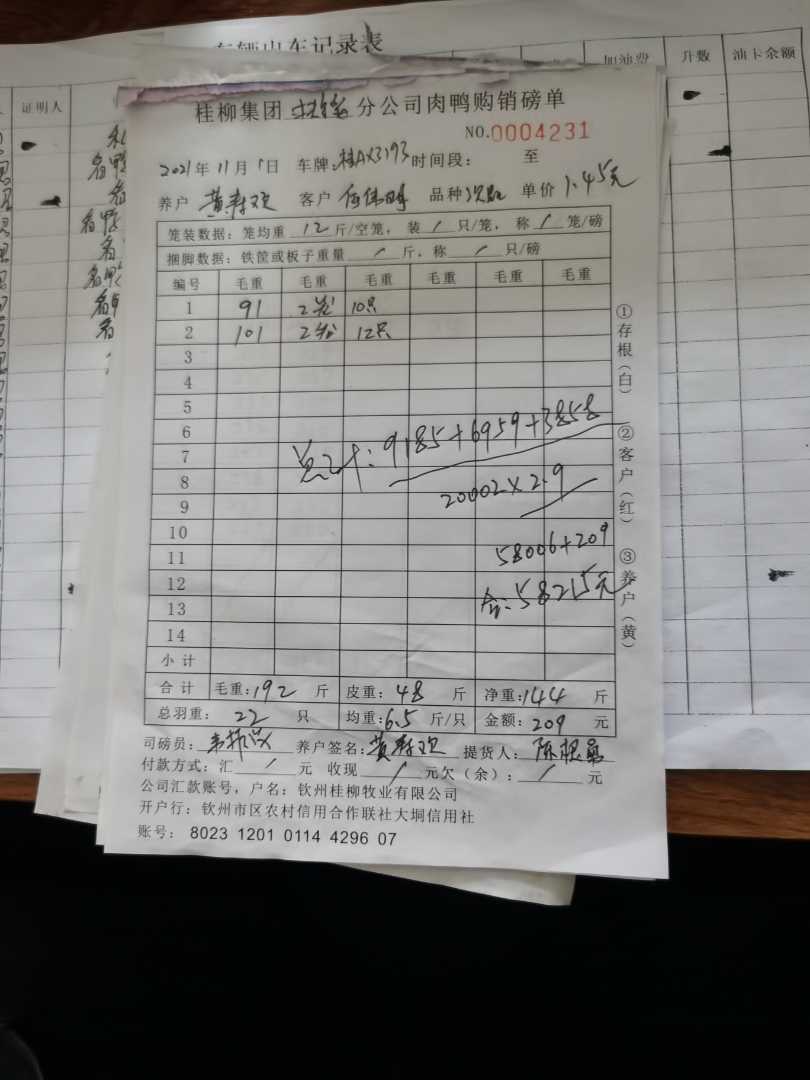 车辆出车记录表
加油费 升数 油卡余额
证明人
桂柳集团 分公司肉鸭购销磅单
NO.0004231
2021年11月1日 车牌:桂AX3193 时间段: 至
养户 黄寿欢 客户 品种 次 单价 1.45元
笼装数据:笼均重 12 斤/空笼,装 / 只/笼,称 / 笼/磅
捆脚数据:铁筐或板子重量 / 斤,称 / 只/磅
编号 毛重 毛重 毛重 毛重 毛重 毛重
1 91 2笼 10只
2 101 2笼 12只
3
4
5
6
7
8
9
10
11
12
13
14
总计:9185+6959+3858
20002×2.9
58006+209
合:58215元
小计
合计 毛重:192 斤 皮重:48 斤 净重:144 斤
总羽重: 22 只 均重:6.5 斤/只 金额:209 元
司磅员: 养户签名:黄寿欢 提货人:陈
付款方式:汇 / 元 收现 / 元欠(余): / 元
公司汇款账号,户名:钦州桂柳牧业有限公司
开户行:钦州市区农村信用合作联社大垌信用社
账号: 8023 1201 0114 4296 07
①存根(白)
②客户(红)
③养户(黄)